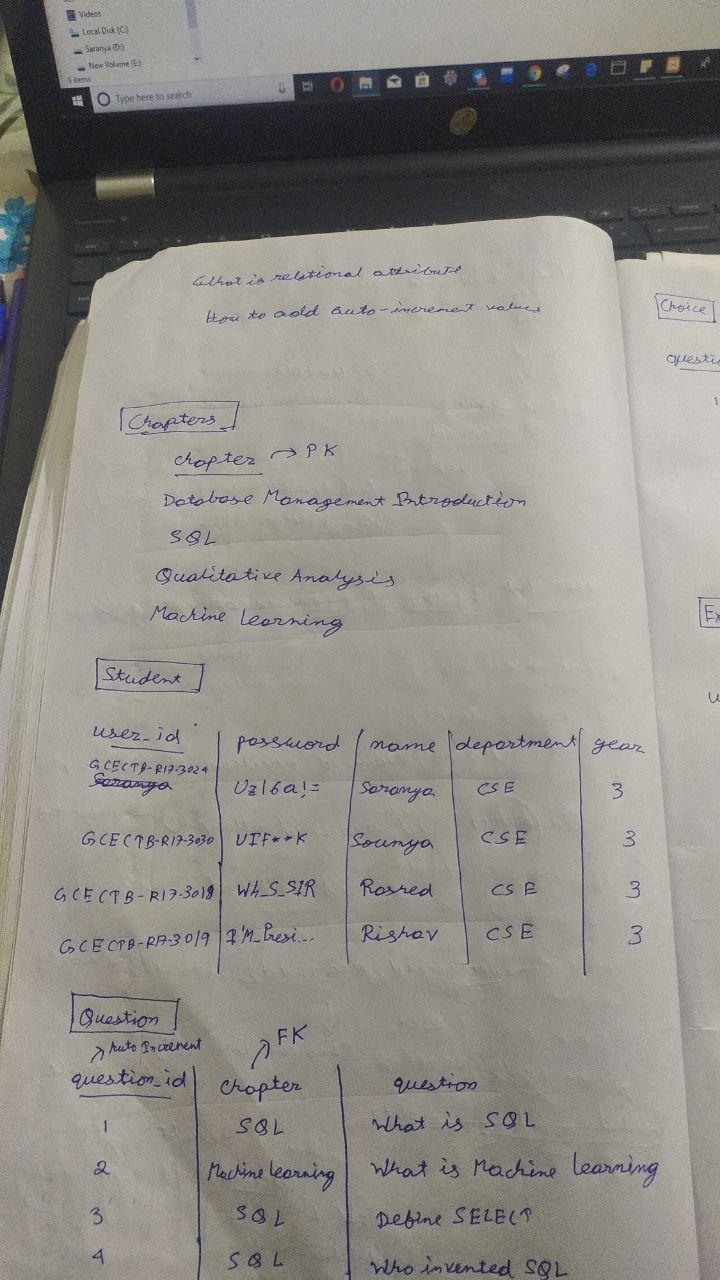 Videos
Local Disk (C:)
Saranya (D:)
New Volume (E:)
9 items
Type here to search
What is relational attribute
How to add auto-increment values
Chapters
chapter → PK
Database Management Introduction
SQL
Qualitative Analysis
Machine Learning
Student
user_id password name department year
GCECTB-R17-3024
Uz16a!= Saranya CSE 3
GCECTB-R17-3030 UIF**K Soumya CSE 3
GCECTB-R17-3018 Wh_S_SIR CSE 3
GCECTB-R17-3019 I'M_Presi... Rishav CSE 3
Question
Auto Increment FK
question_id chapter question
1 SQL What is SQL
2 Machine learning What is Machine learning
3 SQL Define SELECT
4 SQL Who invented SQL
Choice